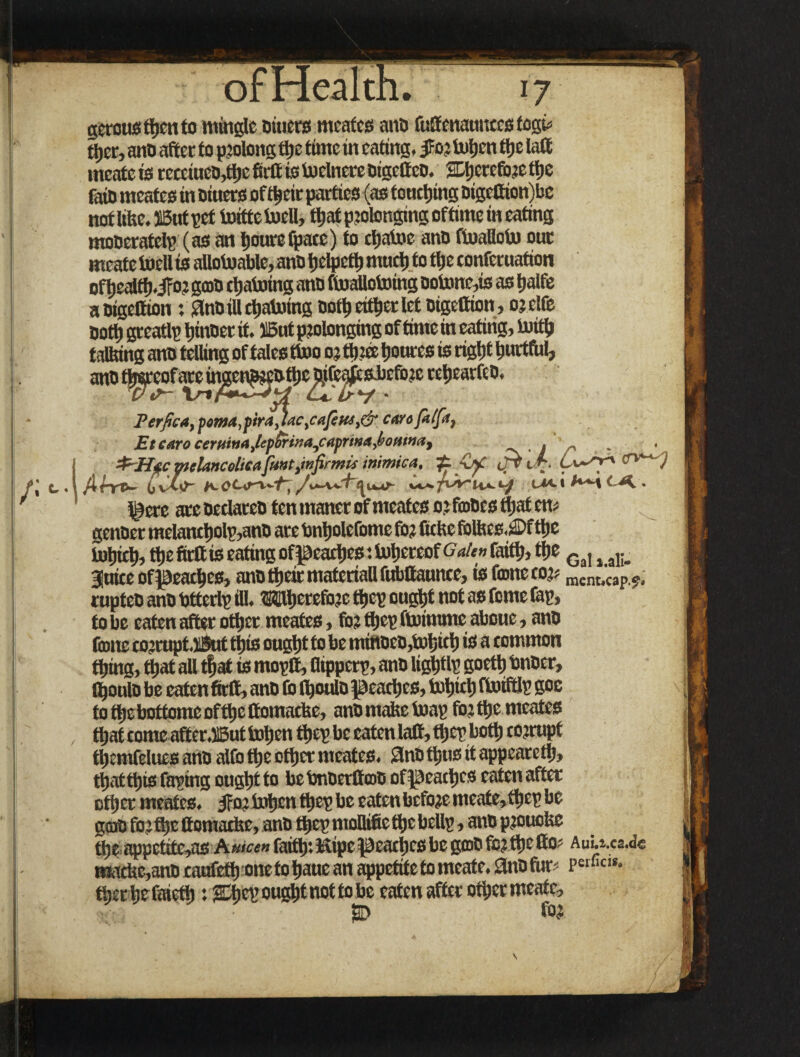 of Health. 17
gerous then to mingle diuers meates and sustenaunces togi-
ther, and after to prolong the time in eating. For when the last
meate is receiued, the first is welnere digested. Therefore the
said meates in diuers of their parties (as touching digestion) be
not like. But yet witte well, that prolonging of time in eating
moderately (as an houre space) to chawe and swallow our
meate well is allowable, and helpeth much to the conseruation
of health. For good chawing and swallowing downe, is as halfe
a digestion: And ill chawing doth either let digestion, or else
doth greatly hinder it. But prolonging of time in eating, with
talking and telling of tales two or three houres is right hurtful,
and thereof are ingendred the diseases before rehearsed.
Persica, poma, pira, lac, caseus, & caro salsa,
Et caro ceruina, leporina, caprina, bouina,
Hæc melancolica sunt, infirmis inimica.
Here are declared ten maner of meates or foodes that en-
gender melancholy, and are vnholesome for sicke folkes. Of the
which, the first is eating of Peaches: whereof Galen saith, the
Iuice of Peaches, and their materiall substaunce, is soone cor-
rupted and vtterly ill. Wherefore they ought not as some say,
to be eaten after other meates, for they swimme aboue, and
soone corrupt. But this ought to be minded, which is a common
thing, that all that is moyst, slippery, and lightly goeth vnder,
should be eaten first, and so should Peaches, which swiftly goe
to the bottome of the stomacke, and make way for the meates
that come after. But when they be eaten last, they both corrupt
themselues and also the other meates. And thus it appeareth,
that this saying ought to be vnderstood of Peaches eaten after
other meates. For when they be eaten before meate, they be
good for the stomacke, and they mollifie the belly, and prouoke
the appetite, as Auicen saith: Ripe Peaches be good for the sto-
macke, and causeth one to haue an appetite to meate. And fur-
ther he saieth: They ought not to be eaten after other meate,
D for
Gal 2. ali-
ment. cap. 9.
Aui. 2. ca. de
persicis.